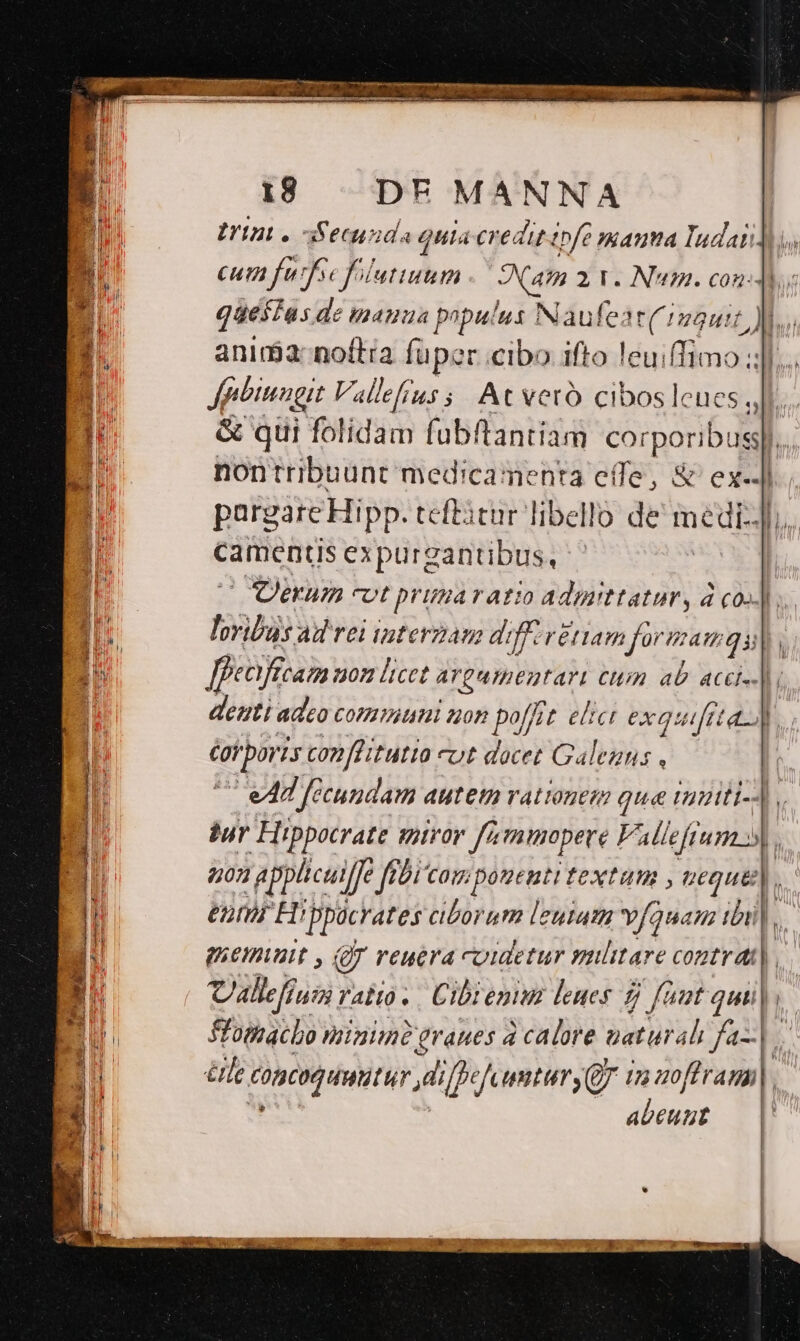 18 DE MANNA
trini. Secunda quia credit ipse manna Iudaii
cum fuisse solutiuum. Nam 21. Num. con-
quæstus de manna populus Nauseat (inquit)
anima nostra super cibo isto leuissimo;
subiungit Vallesius; At verò cibos leues,
& qui solidam substantiam corporibus
non tribuunt medicamenta esse, & ex-
purgare Hipp. testatur libello de medi-
camentis expurgantibus.
Verum vt prima ratio admittatur, à co-
loribus ad rei internam differētiam formamq;
specificam non licet argumentari cum ab acci-
denti adeo communi non possit elici exquisita
corporis constitutio vt docet Galenus.
Ad secundam autem rationem quæ inniti-
tur Hippocrate miror summopere Vallesium
non applicuisse sibi componenti textum, neque
enim Hippocrates ciborum leuium vsquam ibi
meminit, & reuera videtur militare contra
Vallesium ratio. Cibi enim leues ij sunt qui
stomacho minimè graues à calore naturali fa-
cile concoquuntur, dispescuntur, & in nostram
abeunt